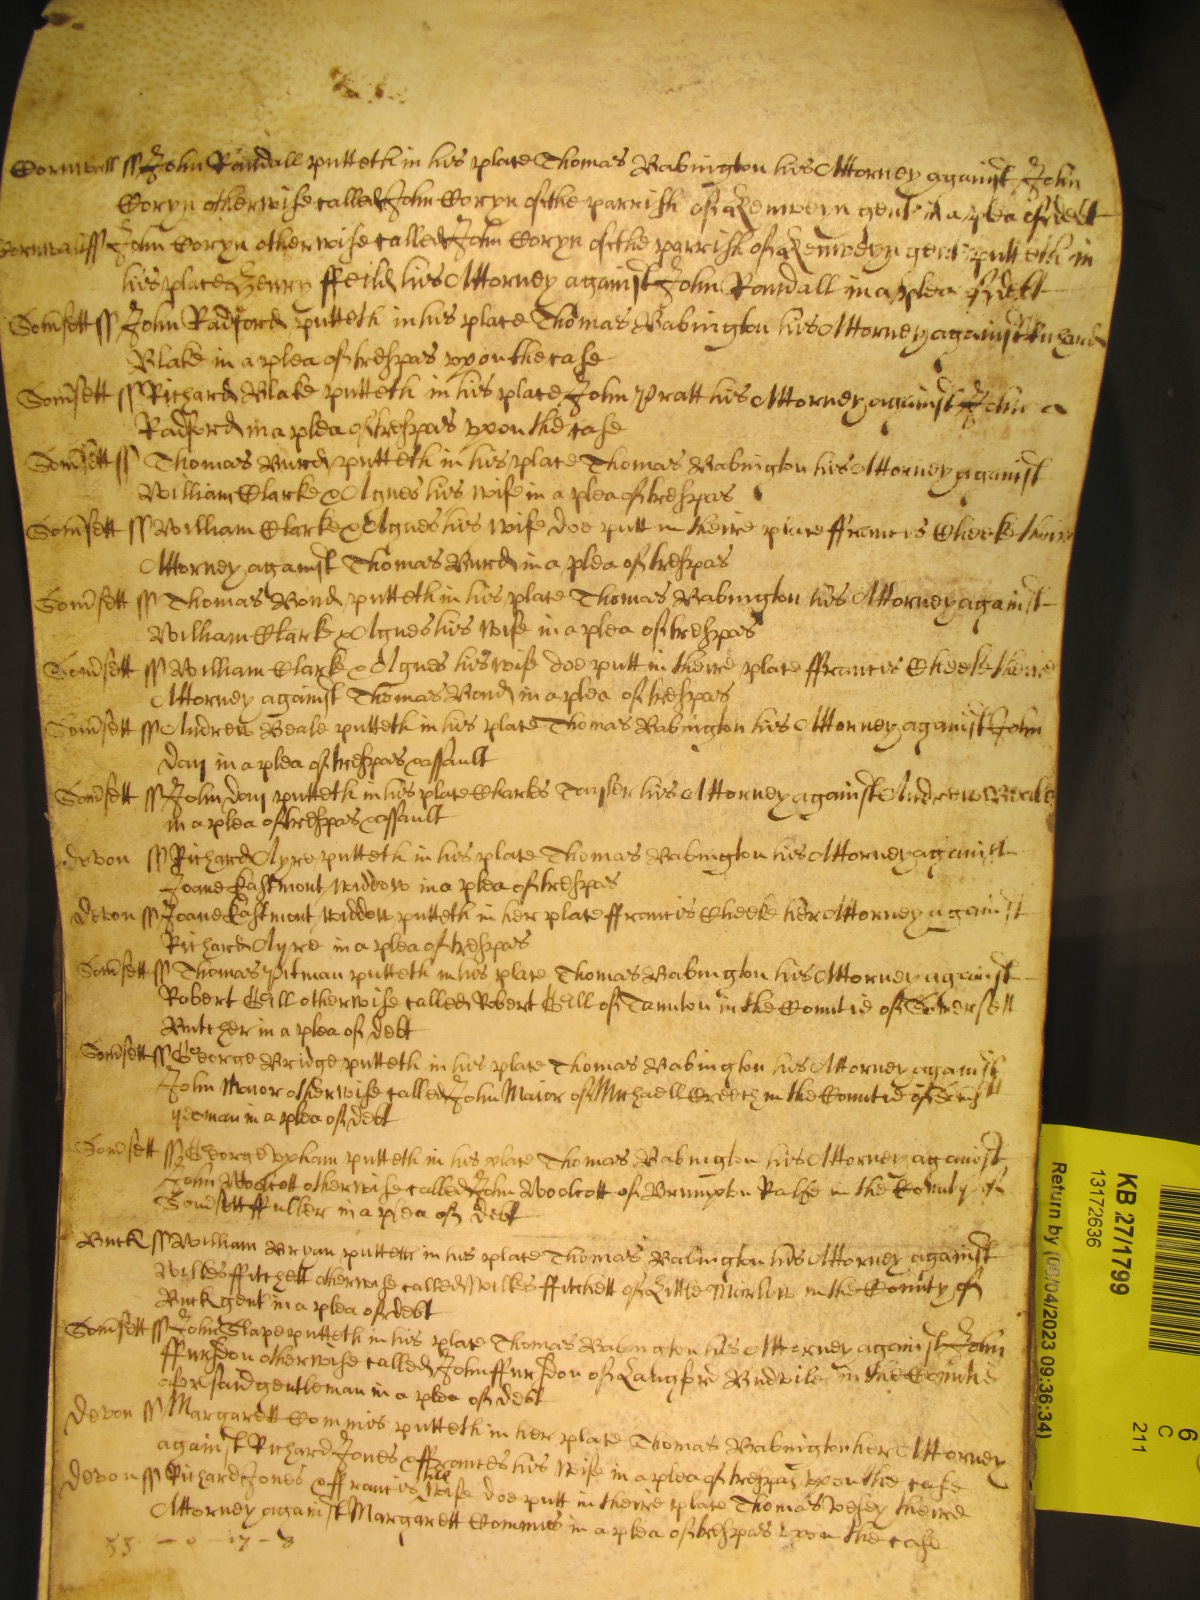 Cornwall ss John Randall putteth in his place Thomas Babington his Attorney against John
Coryn otherwise called John Coryn of the parrish of Kenwyn gent in a plea of debt
Cornwall ss John Coryn otherwise called John Coryn of the parrish of Kenwyn gent putteth in
his place Henry ffeild his Attorney against John Randall in a plea of debt
Somsett ss John Radford putteth in his place Thomas Babington his Attorney against Richard
Blake in a plea of trespas upon the case
Somsett ss Richard Blake putteth in his place John Pratt his Attorney against John
Radford in a plea of trespas upon the case
Somsett ss Thomas Burd putteth in his place Thomas Babington his Attorney against
William Clarke & Agnes his wife in a plea of trespas
Somsett ss William Clarke & Agnes his wife doe putt in theire place ffrancis Cheeke their
Attorney against Thomas Burd in a plea of trespas
Somsett ss Thomas Bond putteth in his place Thomas Babington his Attorney against
William Clark & Agnes his wife in a plea of trespas
Somsett ss William Clark & Agnes his wife doe putt in theire place ffrancis Cheeke theire
Attorney against Thomas Bond in a plea of trespas
Somsett ss Andrew Beale putteth in his place Thomas Babington his Attorney against John
Day in a plea of trespas & assault
Somsett ss John Day putteth in his place Charles Tayler his Attorney against Andrew Beale
in a plea of trespas & assault
Devon ss Richard Ayre putteth in his place Thomas Babington his Attorney against
Joane Eastmont widdow in a plea of trespas
Devon ss Joane Eastmont widdow putteth in her place ffrancis Cheeke her Attorney against
Richard Ayre in a plea of trespas
Somsett ss Thomas Pitman putteth in his place Thomas Babington his Attorney against
Robert Gill otherwise called Robert Gill of Taunton in the Countie of Somersett
Butcher in a plea of debt
Somsett ss George Bridge putteth in his place Thomas Babington his Attorney against
John Maior otherwise called John Maior of Michaell Creech in the Countie of Somsett
yeoman in a plea of debt
Somsett ss George Upham putteth in his place Thomas Babington his Attorney against
John Woolcott otherwise called John Woolcott of Brumpton Ralfe in the County of
Somsett ffuller in a plea of debt
Buck ss William Bryan putteth in his place Thomas Babington his Attorney against
Wilkes ffitchett otherwise called Wilkes ffitchett of Little Marlow in the County of
Buck gent in a plea of debt
Somsett ss John Slape putteth in his place Thomas Babington his Attorney against John
ffursdon otherwise called John ffursdon of Langford Budvile in the Countie
aforesaid gentleman in a plea of debt
Devon ss Margarett Commins putteth in her place Thomas Babington her Attorney
against Richard Jones & ffrances his wife in a plea of trespas upon the case
Devon ss Richard Jones & ffrancis his wife doe putt in theire place Thomas Vesey theire
Attorney against Margarett Commins in a plea of trespas upon the case
KB 27/1799
13172636
Return by (09/04/2023 09:36:34)
6
C
211